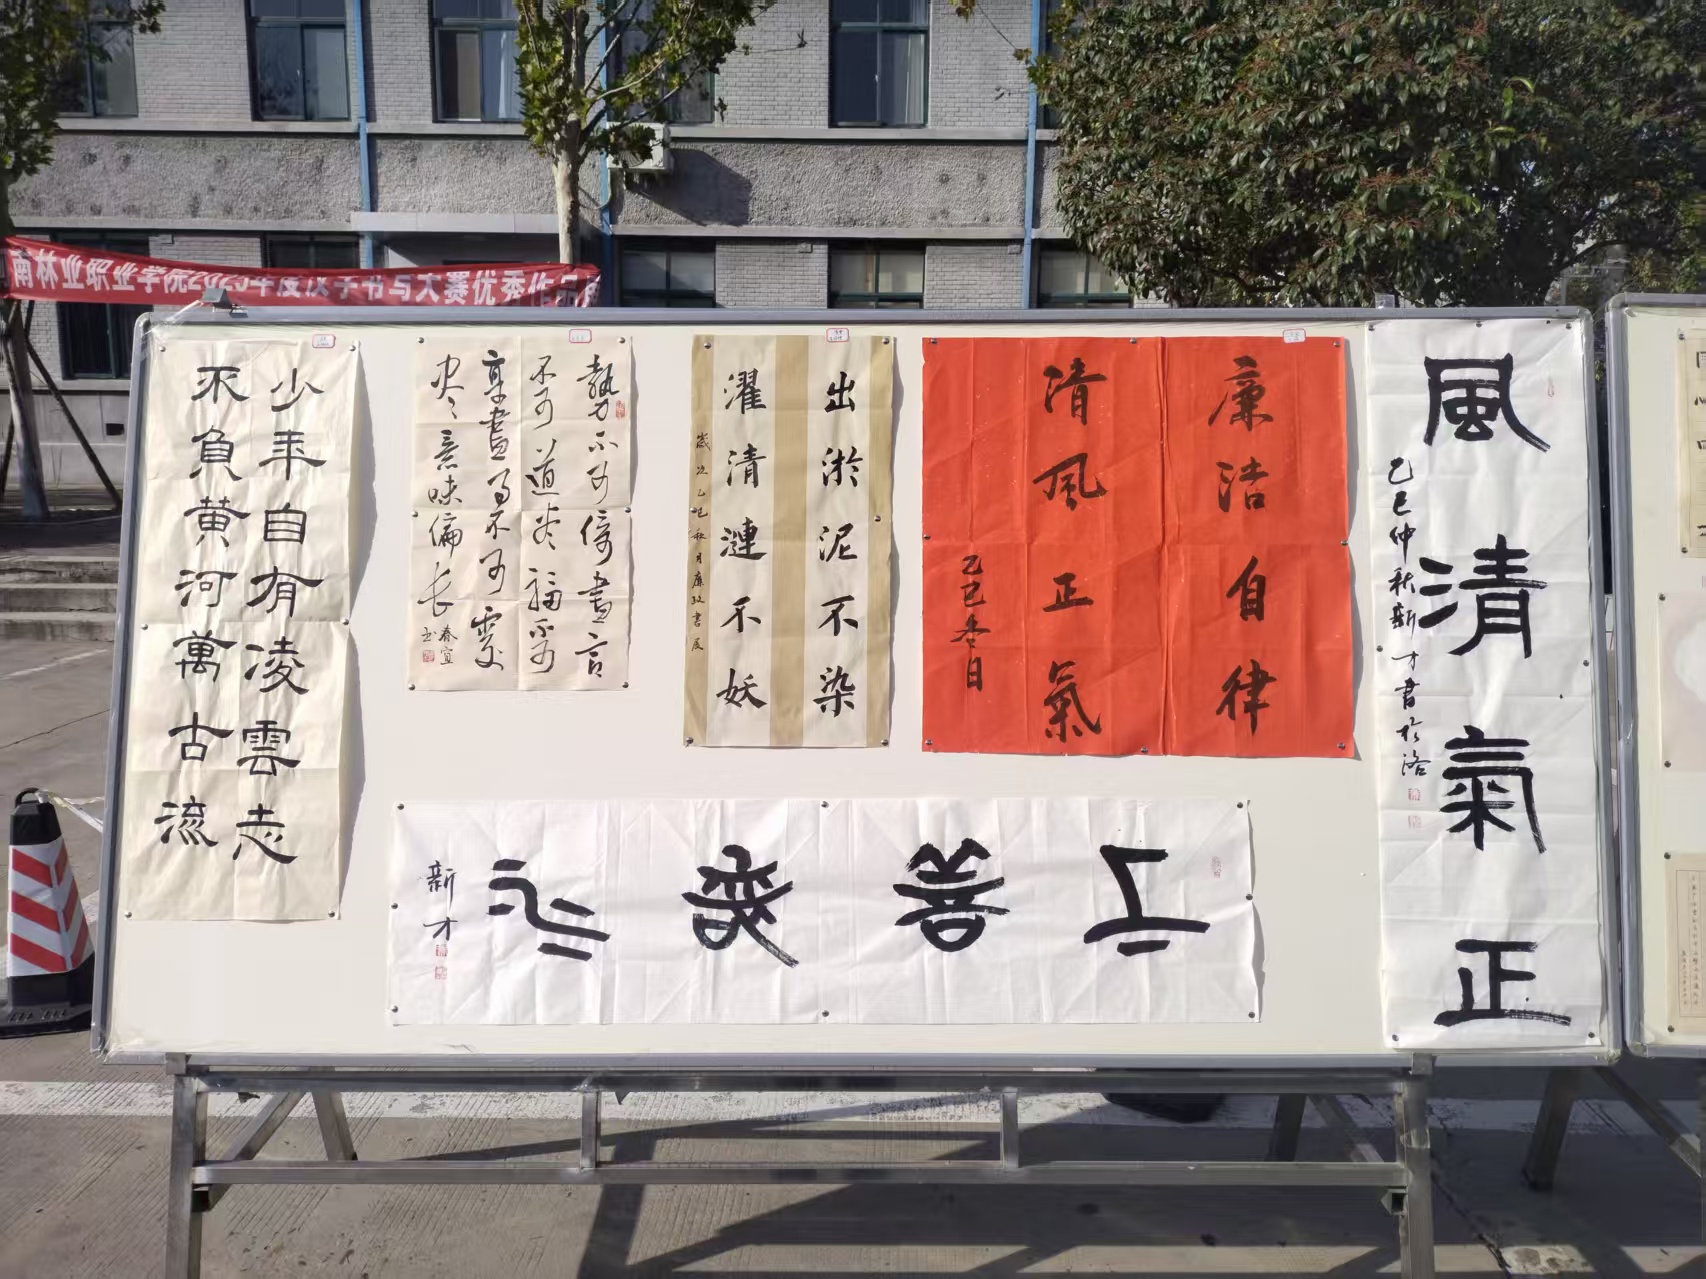 南林业职业学院2025年度汉字书写大赛优秀作品
少年自有凌雲志
不負黄河萬古流
勢力不可倚盡言
不可道尽福不可
享盡事不可處
尽意味偏長
春宜
出淤泥不染
濯清漣不妖
歲次乙巳秋月廉政書展
廉洁自律
清風正氣
乙巳冬日
風清氣正
乙巳仲秋新才書於洛
上善若水
新才